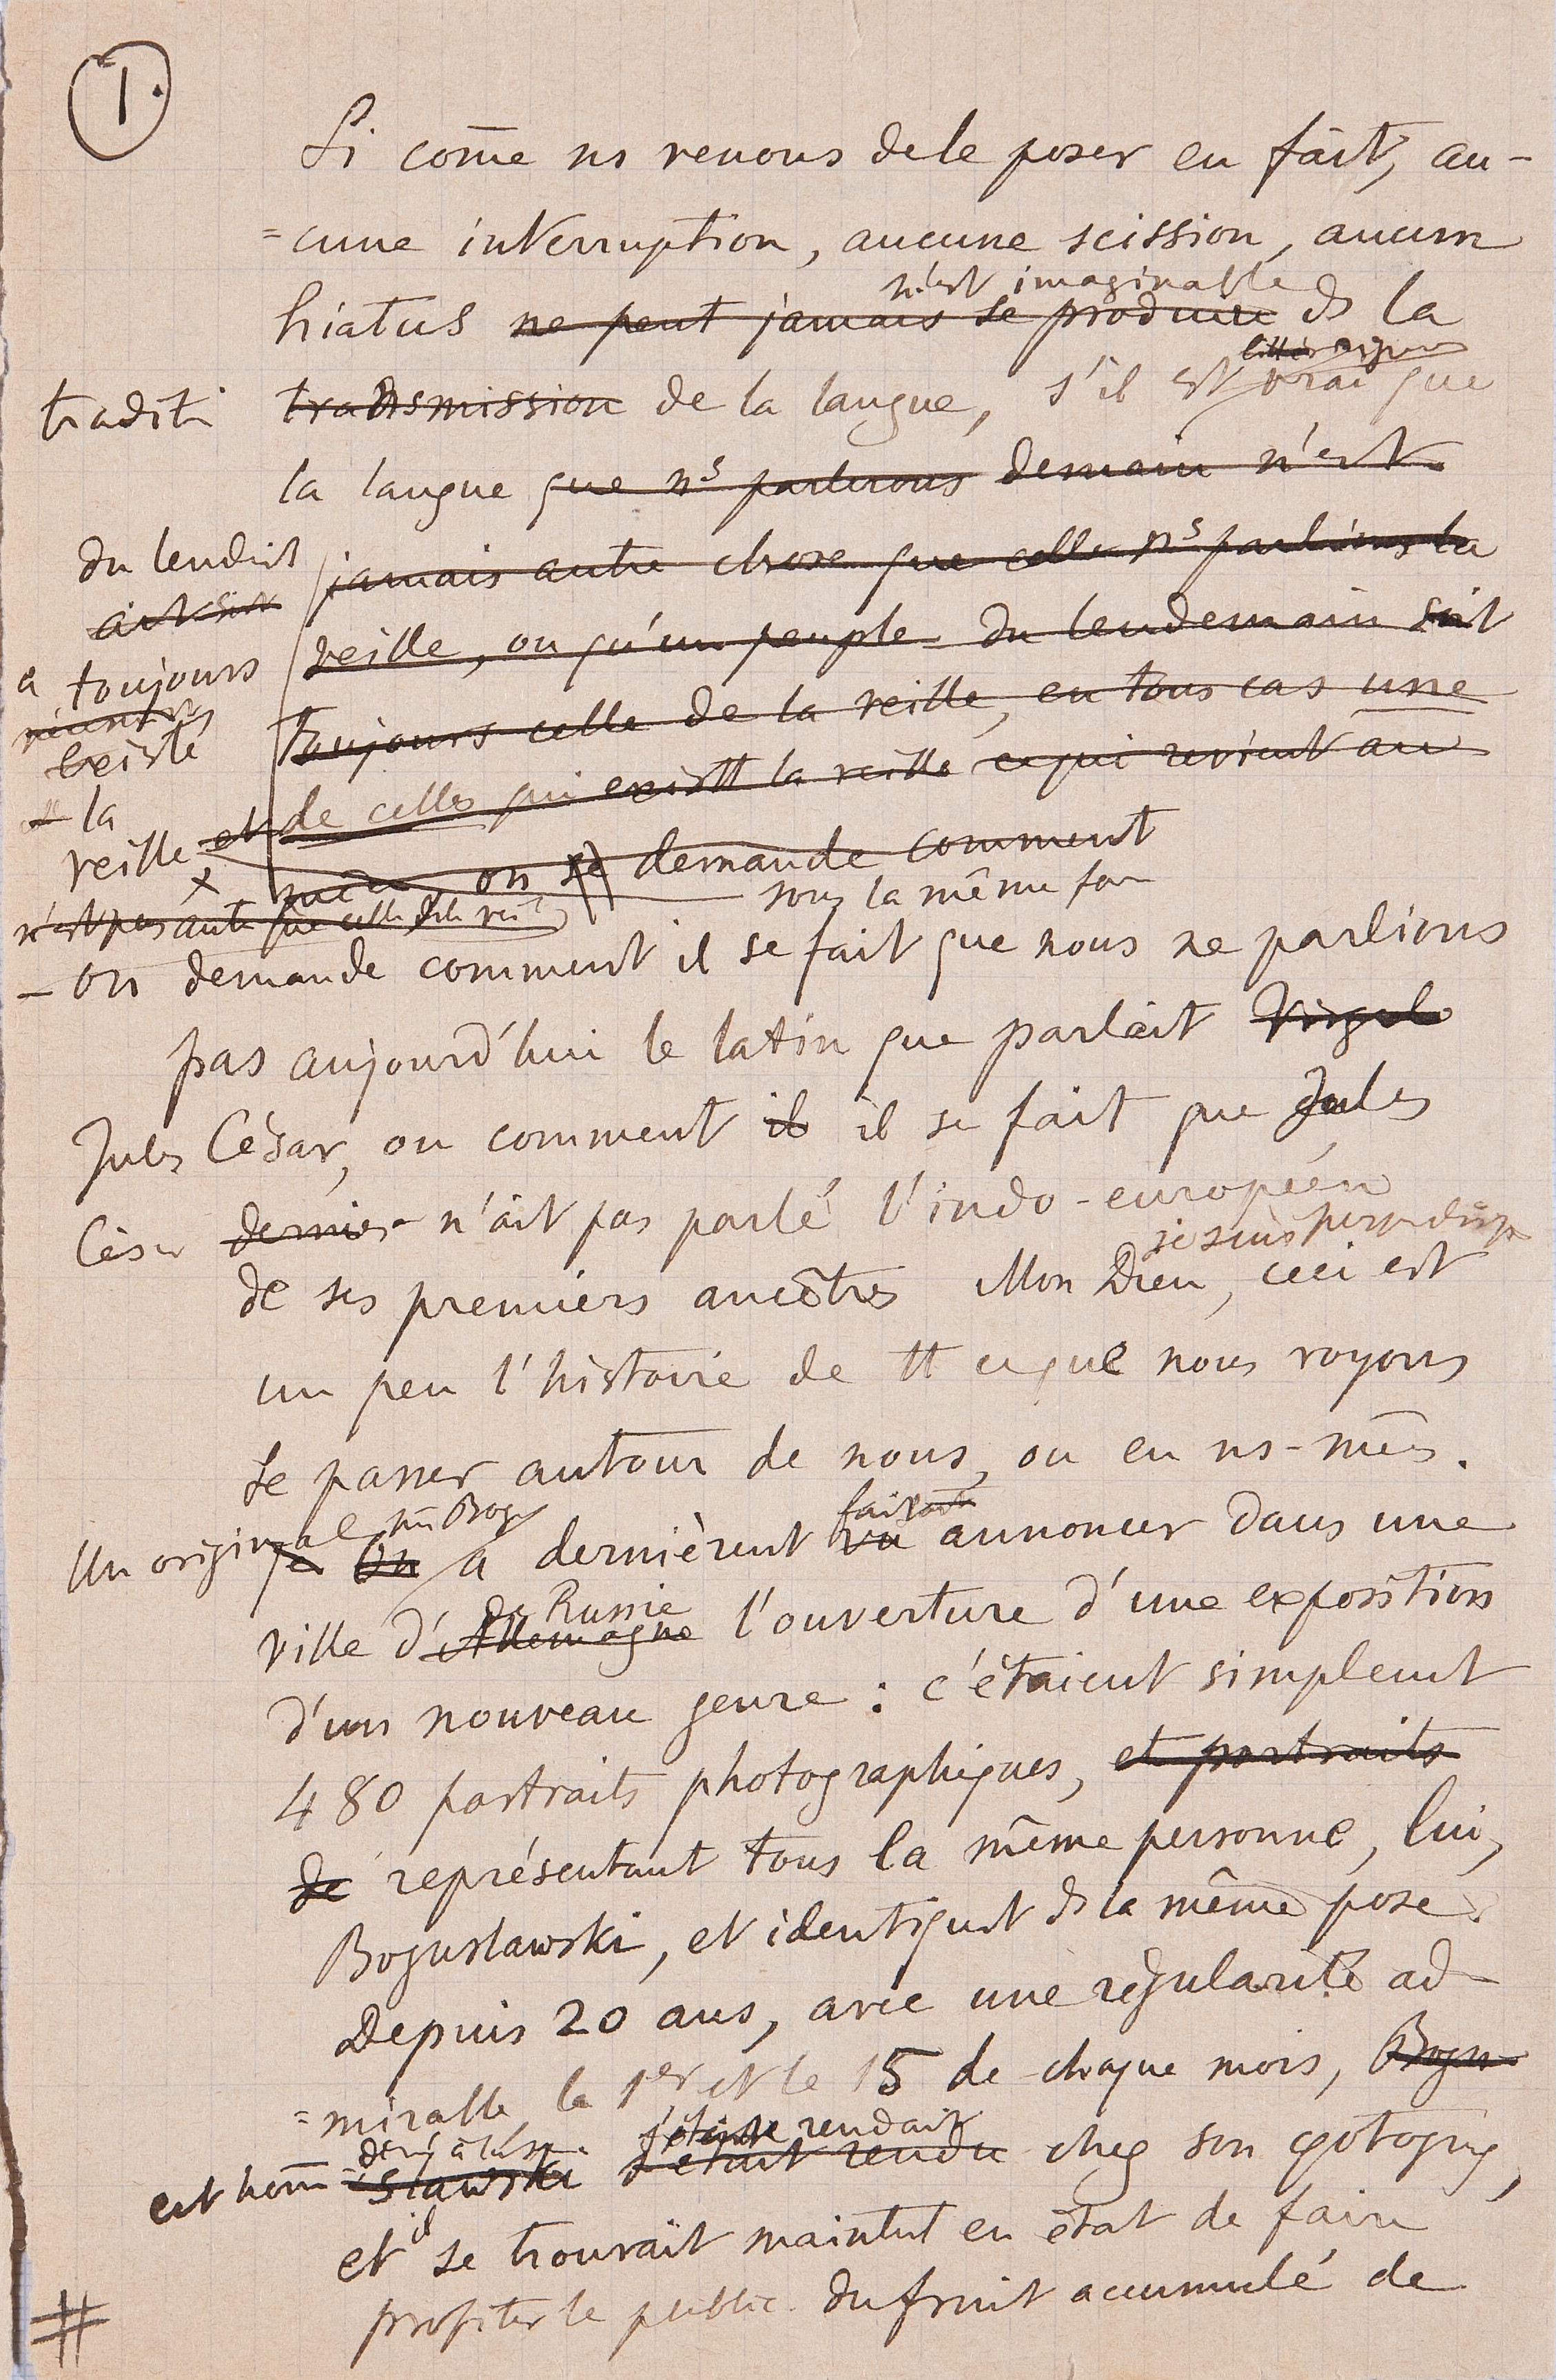 1.
Si cōme ns venons de le poser en fait, au-
=cune interruption, aucune scission, aucun
n'est imaginable
hiatus ne peut jamais se produire ds la
traditi transmission de la langue, s'il est vrai que
la langue que ns parlerons demain n'est
du lendit jamais autre chose que celle ns parlions la
veille, ou qu'un peuple du lendemain soit
a toujours
toujours celle de la veille, en tous cas une
existé
la
de celles qui existt la veille ce qui revient au
veille et
mê on se demande comment
sous la même for
n'est pas autre que celle de la veil
– on demande comment il se fait que nous ne parlions
pas aujourd'hui le latin que parlait Virgile
Jules César, ou comment il il se fait que Jules
César dernier n'ait pas parlé l'indo-européen
de ses premiers ancêtres Mon Dieu, ceci est
je suis
un peu l'histoire de tt ce que nous voyons
se passer autour de nous, ou en ns-mês.
Un original nm̄ Bog faisait
On a dernièrent vu annoncer dans une
de Russie
ville d'Allemagne l'ouverture d'une exposition
d'un nouveau genre : c'étaient simplemt
480 portraits photographiques, et portraits
de représentant tous la même personne, lui,
Boguslawski, et identiqut ds la même pose.
Depuis 20 ans, avec une régularité ad-
=mirable, le 1er et le 15 de chaque mois, Bogu
rendait
cet hom̄ =slawski s'était rendu chez son φotogrφ,
et il se trouvait maintnt en état de faire
profiter le public du fruit accumulé de
#